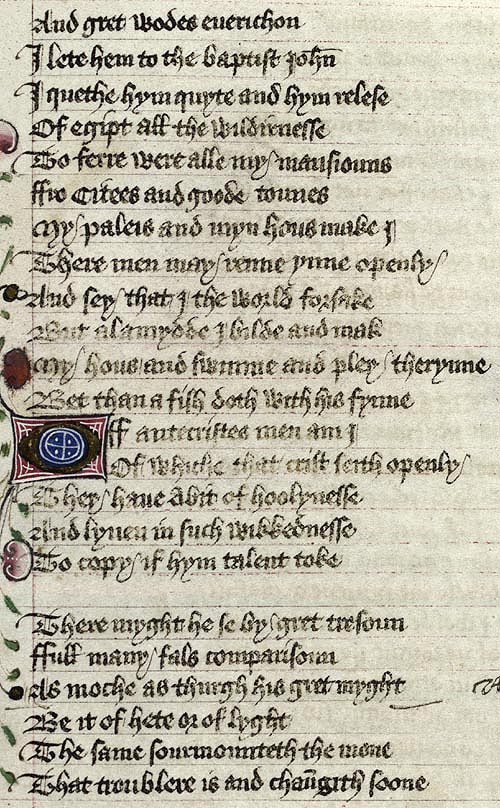 And gret wodes euerichon
I lete hem to the baptist John̄
I quethe hym quyte and hym relese
Of egipt all the wildirnesse
To ferre were alle my mansiouns
ffro Citees and goode tounes
My paleis and myn hous make I
There men may renne ynne openly
And sey that I the world forsake
But al amydde I bilde and mak
My hous and swimme and pley therynne
Bet than a fish doth with his fynne
Off antecristes men am I
Of whiche that crist seith openly
They haue abit of hoolynesse
And lyuen in such wikkednesse
To copy if hym talent toke
There myght he se by gret tresoun
ffull many fals comparisoun
As moche as thurgh his gret myght
Be it of hete or of lyght
The same sourmounteth the mone
That troublere is and chaungith soone